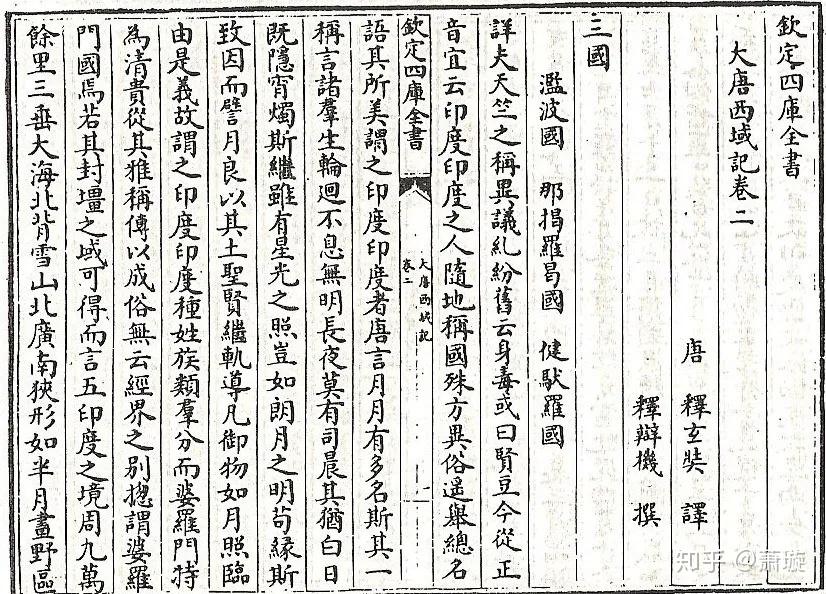 欽定四庫全書
大唐西域記卷二
唐 釋玄奘 譯
釋辯機 撰
三國
濫波國 那揭羅曷國 健馱羅國
詳夫天竺之稱異議糺紛舊云身毒或曰賢豆今從正
音宜云印度印度之人隨地稱國殊方異俗遥舉總名
欽定四庫全書
大唐西域記
卷二
一
語其所美謂之印度印度者唐言月月有多名斯其一
稱言諸羣生輪迴不息無明長夜莫有司晨其猶白日
既隱宵燭斯繼雖有星光之照豈如朗月之明茍緣斯
致因而譬月良以其土聖賢繼軌導凡御物如月照臨
由是義故謂之印度印度種姓族類羣分而婆羅門特
為清貴從其雅稱傳以成俗無云經界之别摠謂婆羅
門國焉若其封壃之域可得而言五印度之境周九萬
餘里三垂大海北背雪山北廣南狹形如半月畫野區
知乎 @萧璇